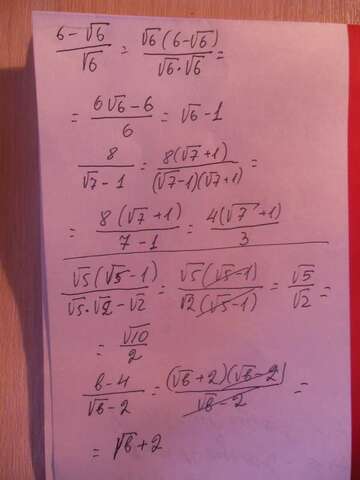 (6-√6)/√6 = √6(6-√6)/(√6·√6) =
= (6√6-6)/6 = √6-1
8/(√7-1) = 8(√7+1)/((√7-1)(√7+1)) =
= 8(√7+1)/(7-1) = 4(√7+1)/3
√5(√5-1)/(√5·√2-√2) = √5(√5-1)/(√2(√5-1)) = √5/√2 =
= √10/2
(b-4)/(√b-2) = (√b+2)(√b-2)/(√b-2) =
= √b+2